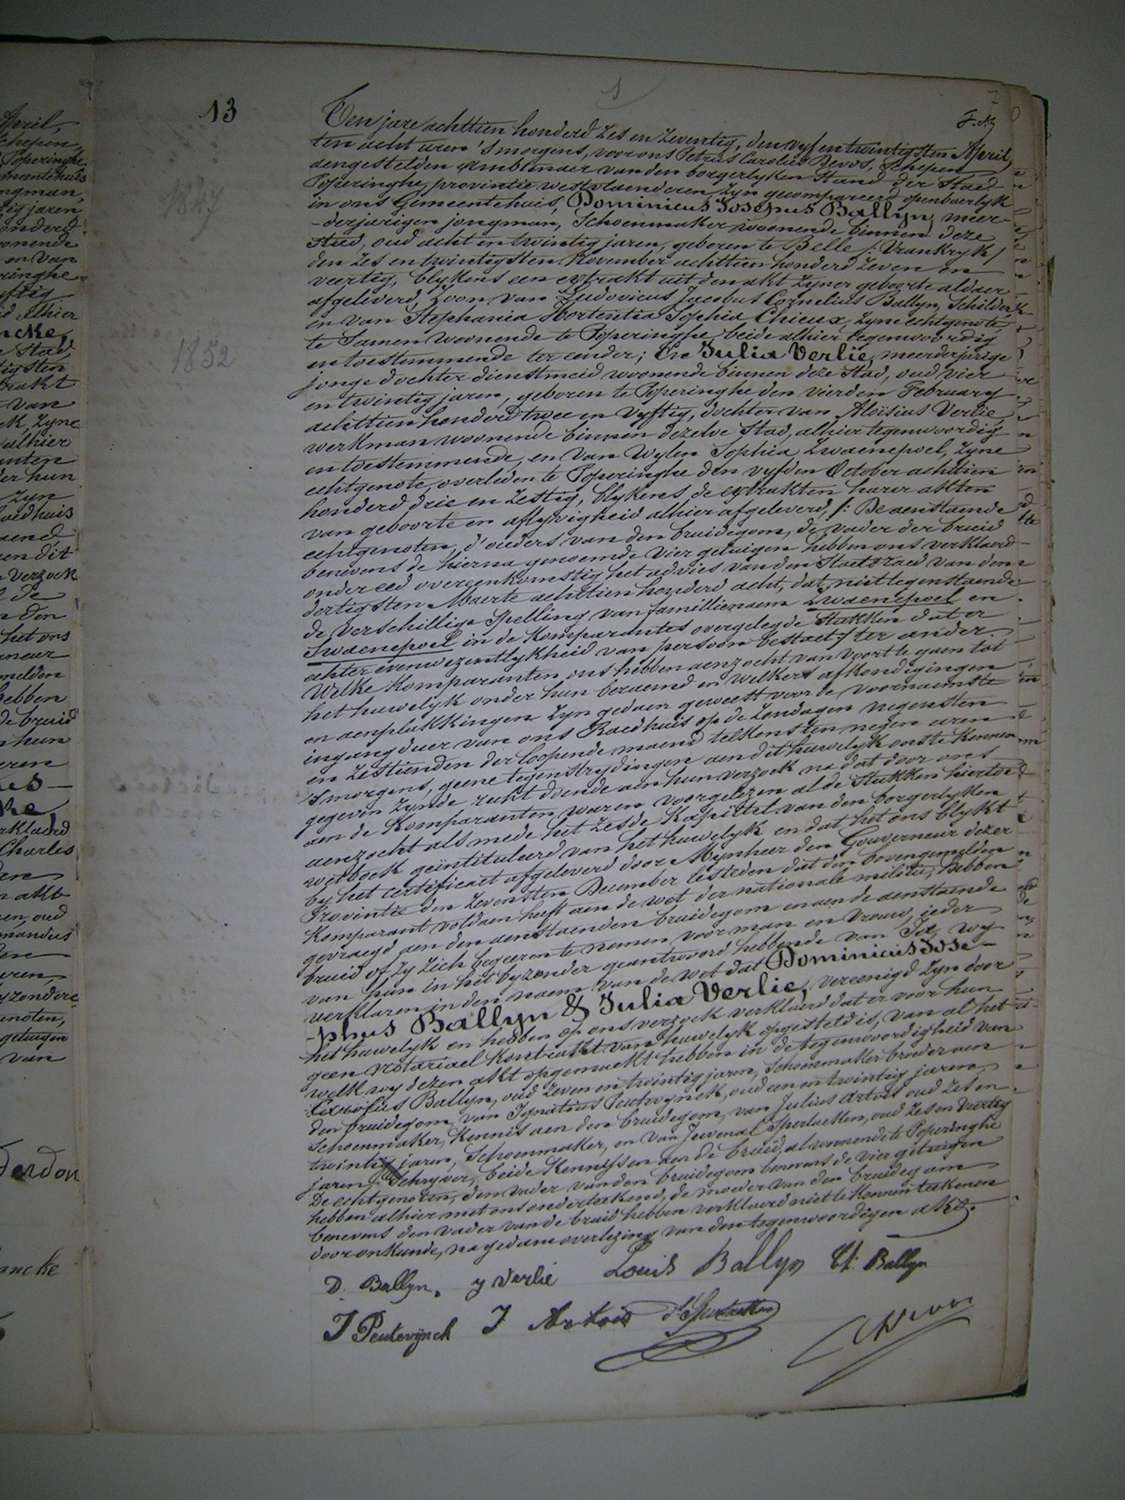 13
1
7
F. N3
Ten jare achttien honderd zes en zeventig, den vyf en twintigsten April,
ten acht uren 's morgens, voor ons Petrus Carolus Devos, Schepen
aengestelden Ambtenaer van den borgerlyken Stand der Stad
Poperinghe, provintie Westvlaenderen zyn gecompareerd openbaerlyk
in ons Gemeentehuis, Dominicus Josephus Ballyn, meer-
-derjarigen jongman, Schoenmaker woonende binnen deze
stad, oud acht en twintig jaren, geboren te Belle /: Vrankryk /
den zes en twintigsten November achttien honderd zeven en
veertig, blykens een extrakt uit den akt zyner geboorte aldaer
afgeleverd, zoon van Ludovicus Jacobus Cornelius Ballyn, Schilder
en van Stephania Hortentia Sophia Chieux, zyne echtgenote
te samen woonende te Poperinghe beide alhier tegenwoordig
en toestemmende ter eender; En Julia Verlie, meerderjarige
jonge dochter dienstmeid woonende binnen deze stad, oud vier
en twintig jaren, geboren te Poperinghe den vierden February
achttien honderd twee en vyftig, dochter van Aloisius Verlie
werkman woonende binnen dezelve stad, alhier tegenwoordig
en toestemmende, en van wylen Sophia Zwaenepoel, zyne
echtgenote, overleden te Poperinghe den vyfden October achttien
honderd drie en zestig, blykens de extrakten harer akten
van geboorte en aflyvigheid alhier afgeleverd, /: De aenstaende
echtgenoten, d'ouders van den bruidegom, de vader der bruid
benevens de hierna genoemde vier getuigen hebben ons verklaerd
onder eed overeenkomstig het advies van den Staetsraed van den
dertigsten Maerte achttien honderd acht, dat, niettegenstaende
de verschillige spelling van familienaem Zwaenepoel en
Swaenepoel in de komparantes overgelegde stukken dat er
achter evenwezentlykheid van persoon bestaet / ter ander.
Welke komparanten ons hebben aenzocht van voort te gaen tot
het huwelyk onder hun beraemd en welkers afkondigingen
en aenplakkingen zyn gedaen geweest voor de voornaemste
ingangduer van ons Raedhuis op de zondagen negensten
en zestienden der loopende maend telkensten negen uren
's morgens, geene tegenstrydingen aen dit huwelyk ons te kennen
gegeven zynde recht doende aen hun verzoek na dat door ons
aen de komparanten waren voorgelezen al de stukken hiertoe
aenzocht als mede het zesde kapittel van den borgerlyken
wetboek geintituleerd van het huwelyk en dat het ons blykt
by het certificaet afgeleverd door Mynheer den Gouverneur dezer
Provintie den zevensten December lestleden dat den bovengemelden
komparant voldaen heeft aen de wet der nationale militie, hebben
gevraegd aen den aenstaenden bruidegom en aen de aenstaende
bruid of zy zich begeeren te nemen voor man en vrouw, jeder
van hun in het byzonder geantwoord hebbende van Ja, wy
verklaren in den naem van de wet dat Dominicus Jose-
-phus Ballyn & Julia Verlie, vereenigd zyn door
het huwelyk en hebben op ons verzoek verklaerd dat er voor hun
geen notariael kontrakt van huwelyk opgesteld is, van al het
welk wy dezen akt opgemaekt hebben in de tegenwoordigheid van
Ballyn, oud zeven en twintig jaren, Schoenmaker broeder aen
den bruidegom, van Ignatius Peuteynck, oud een en twintig jaren,
Schoenmaker, kennis aen den bruidegom, van Julius Artois oud zes en
twintig jaren, Schoenmaker, en van Juvenal d'Spertaelken, oud zes en veertig
jaren, Schryver, beide kennissen aen de bruid, al woonende te Poperinghe
De echtgenoten, den vader van den bruidegom benevens de vier getuigen
hebben alhier met ons onderteekend, de moeder van den bruidegom
benevens den vader van de bruid hebben verklaerd niet te kennen teekenen
door onkunde, na gedane overlezing van den tegenwoordigen akt.
D. Ballyn. J Verlie Louis Ballyn Ballyn
I Peutevÿnck J Artois
1847
1852